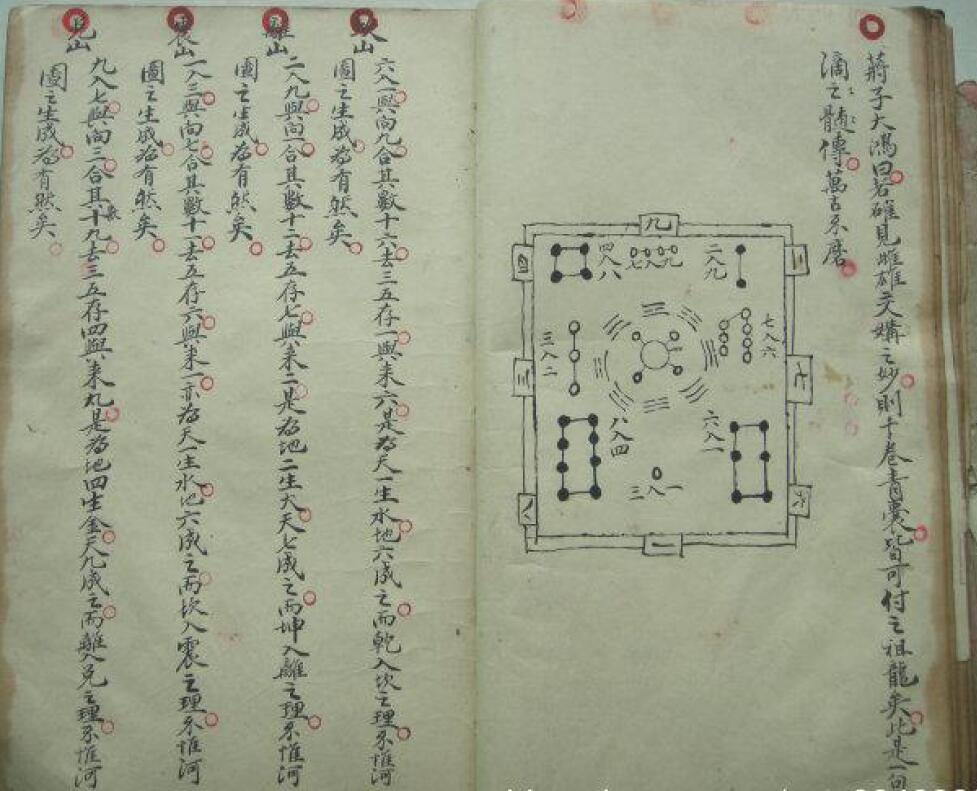 蔣子大鴻曰若確見雌雄交媾之妙則十卷青囊皆可付之祖龍矣此是一句
滴之髓傳萬古不磨
九
四入八
七入九
二入九
三入二
七入六
八入四
三入一
六入一
三
八
一
坎山
六入一與向九合其數十六去三五存一與來六是為天一生水地六成之而乾入坎之理不惟河
圖之生成為有然矣
離山
二入九與向一合其數十二去五存七與來二是為地二生火天七成之而坤入離之理不惟河
圖之生成為有然矣
震山
一入三與向七合其數十一去五存六與來一亦為天一生水地六成之而坎入震之理不惟河
圖之生成為有然矣
兌山
九入七與向三合其數十九去三五存四與來九是為地四生金天九成之而離入兌之理不惟河
圖之生成為有然矣